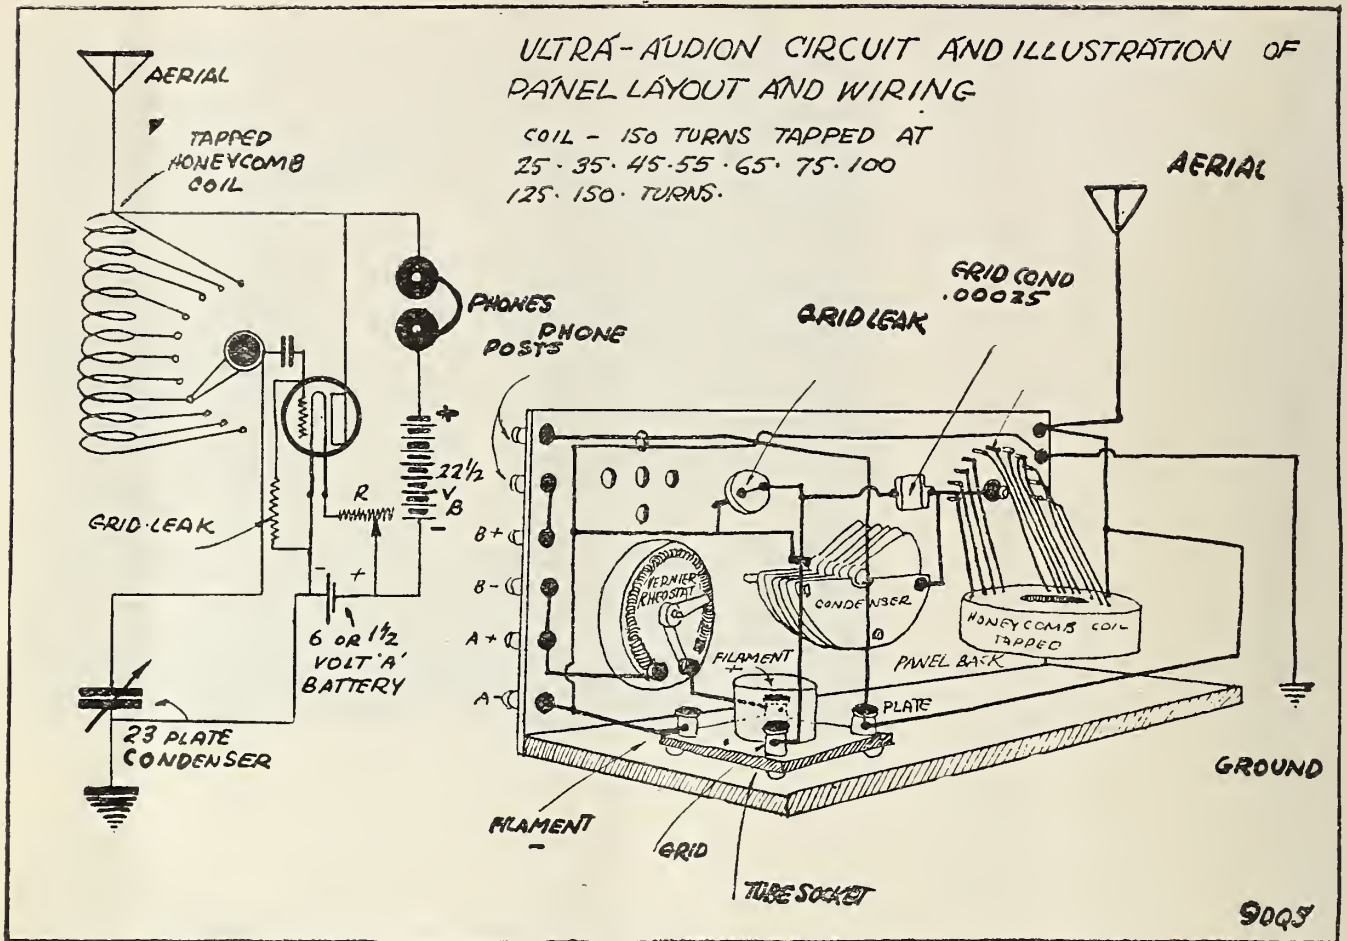 ULTRA-AUDION CIRCUIT AND ILLUSTRATION OF
PANEL LAYOUT AND WIRING
COIL - 150 TURNS TAPPED AT
25 · 35 · 45 · 55 · 65 · 75 · 100
125 · 150 · TURNS ·
AERIAL
TAPPED
HONEYCOMB
COIL
PHONES
PHONE
POSTS
+
22 1/2
V
B
-
R
GRID · LEAK
- +
6 OR 1 1/2
VOLT "A"
BATTERY
23 PLATE
CONDENSER
AERIAL
GRID COND
.00025
GRID LEAK
B+
B-
A+
A-
VERNIER
RHEOSTAT
CONDENSER
HONEYCOMB COIL
TAPPED
PANEL BACK
FILAMENT
+
PLATE
GROUND
FILAMENT
-
GRID
TUBE SOCKET